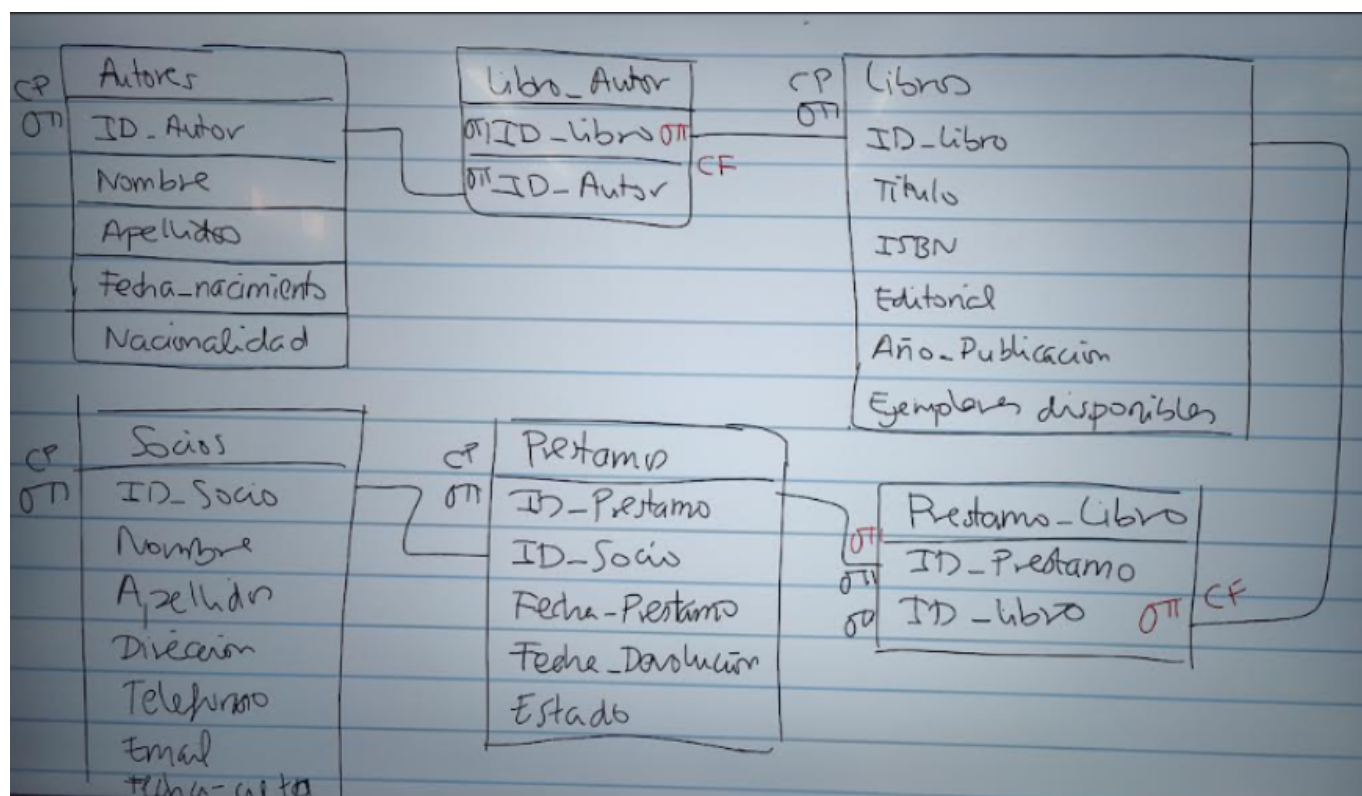 CP
Autores
ID_Autor
Nombre
Apellidos
Fecha_nacimiento
Nacionalidad
Libro_Autor
ID_Libro
CF
ID_Autor
CP
Libros
ID_Libro
Título
ISBN
Editorial
Año_Publicación
Ejemplares disponibles
CP
Socios
ID_Socio
Nombre
Apellidos
Dirección
Telefono
Email
CP
Prestamo
ID_Prestamo
ID_Socio
Fecha_Prestamo
Fecha_Devolución
Estado
Prestamo_Libro
ID_Prestamo
ID_Libro
CF